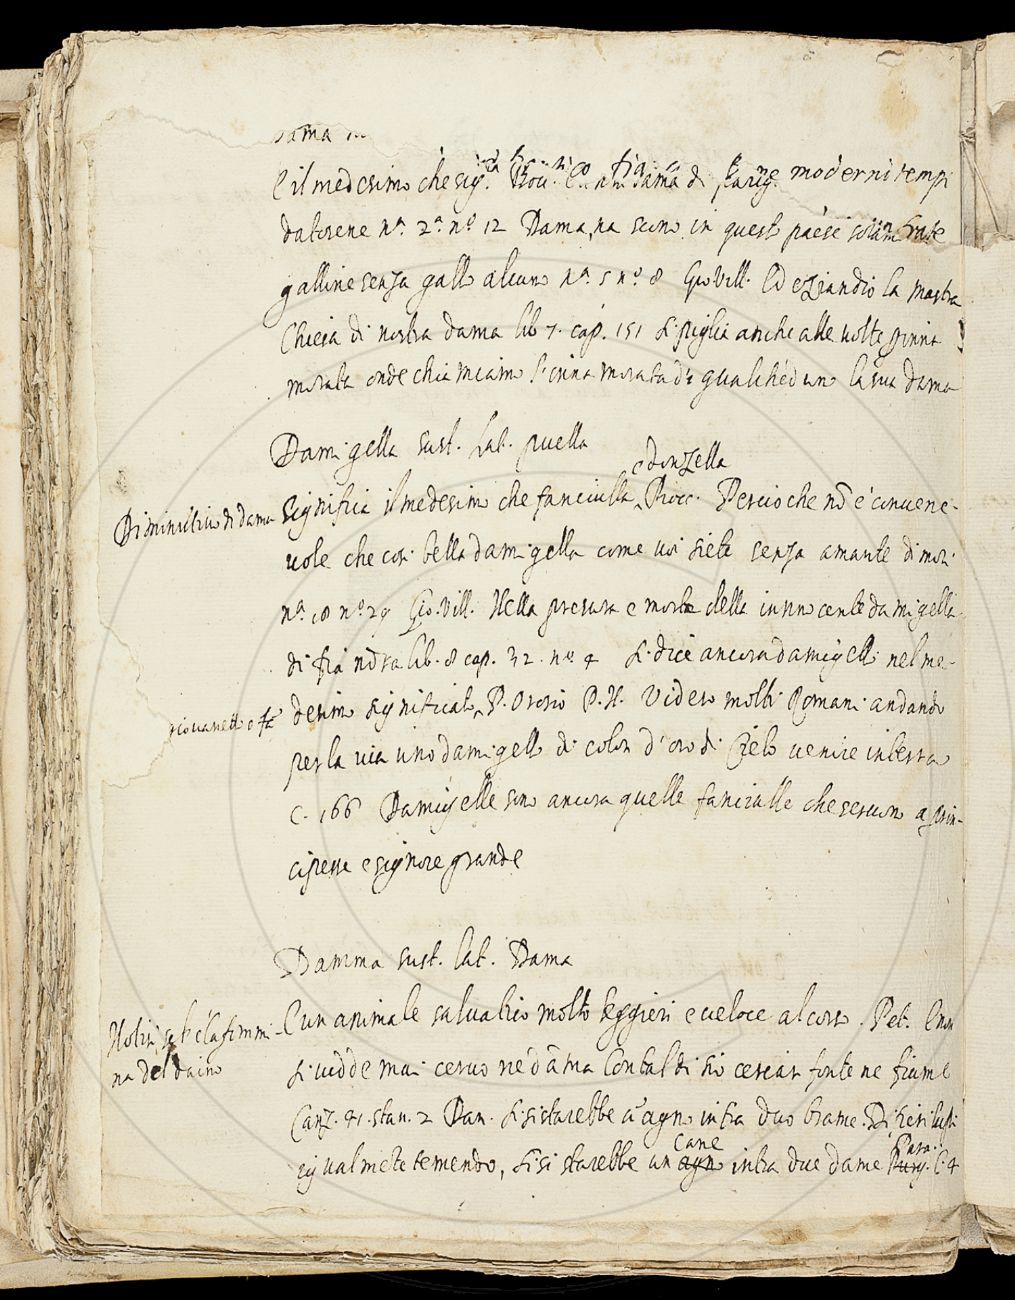 Dama
È il medesimo che sig.ra Bocc. dama di Parig. moderni tempi
da torene n.a 2.a n.o 12 Dama, na sono in quest paese solam.te
galline senza gallo alcuno n.a 5 n.o 8 Gio Vill. Ed eziandio la mastra
Chiesa di nostra dama lib 7. cap. 151 Si piglia anche alle volte p
morata onde chiamiamo l'innamorata di qualched'uno la sua dama
Damigella sust. Lat. puella
e donzella
Diminutivo di dama
Significa il medesimo che fanciulla Bocc. Percioche nō è convene-
vole che così bella damigella come voi siete senza amante dimori
n.a 18 n.o 29 Gio. Vill. Nella presura e morte della innocente damigella
di fiandra lib. 8 cap. 32 n.o 4 Si dice ancora damigello nel me-
giovanetto o
desimo significato P. Orosio P. N. Videro molti Romani andando
per la via uno damigello di color d'oro di Cielo venire in terra
C. 166 Damigelle sono ancora quelle fanciulle che servono a prin-
cipesse e signore grande
Damma sust. lat. Dama
Notisi che è la femmi-
na del daino
È un animale salvatico molto leggieri e veloce al corso. Pet. E non
si vidde mai cervo nè dāma Con tal disio cercar fonte ne fiume
Canz. 41. stan. 2 Dan. Si si starebbe ū agno intra duo brame Di fieri lupi
igualmēte temendo, Si si starebbe un cane intra due dame Para. C. 4